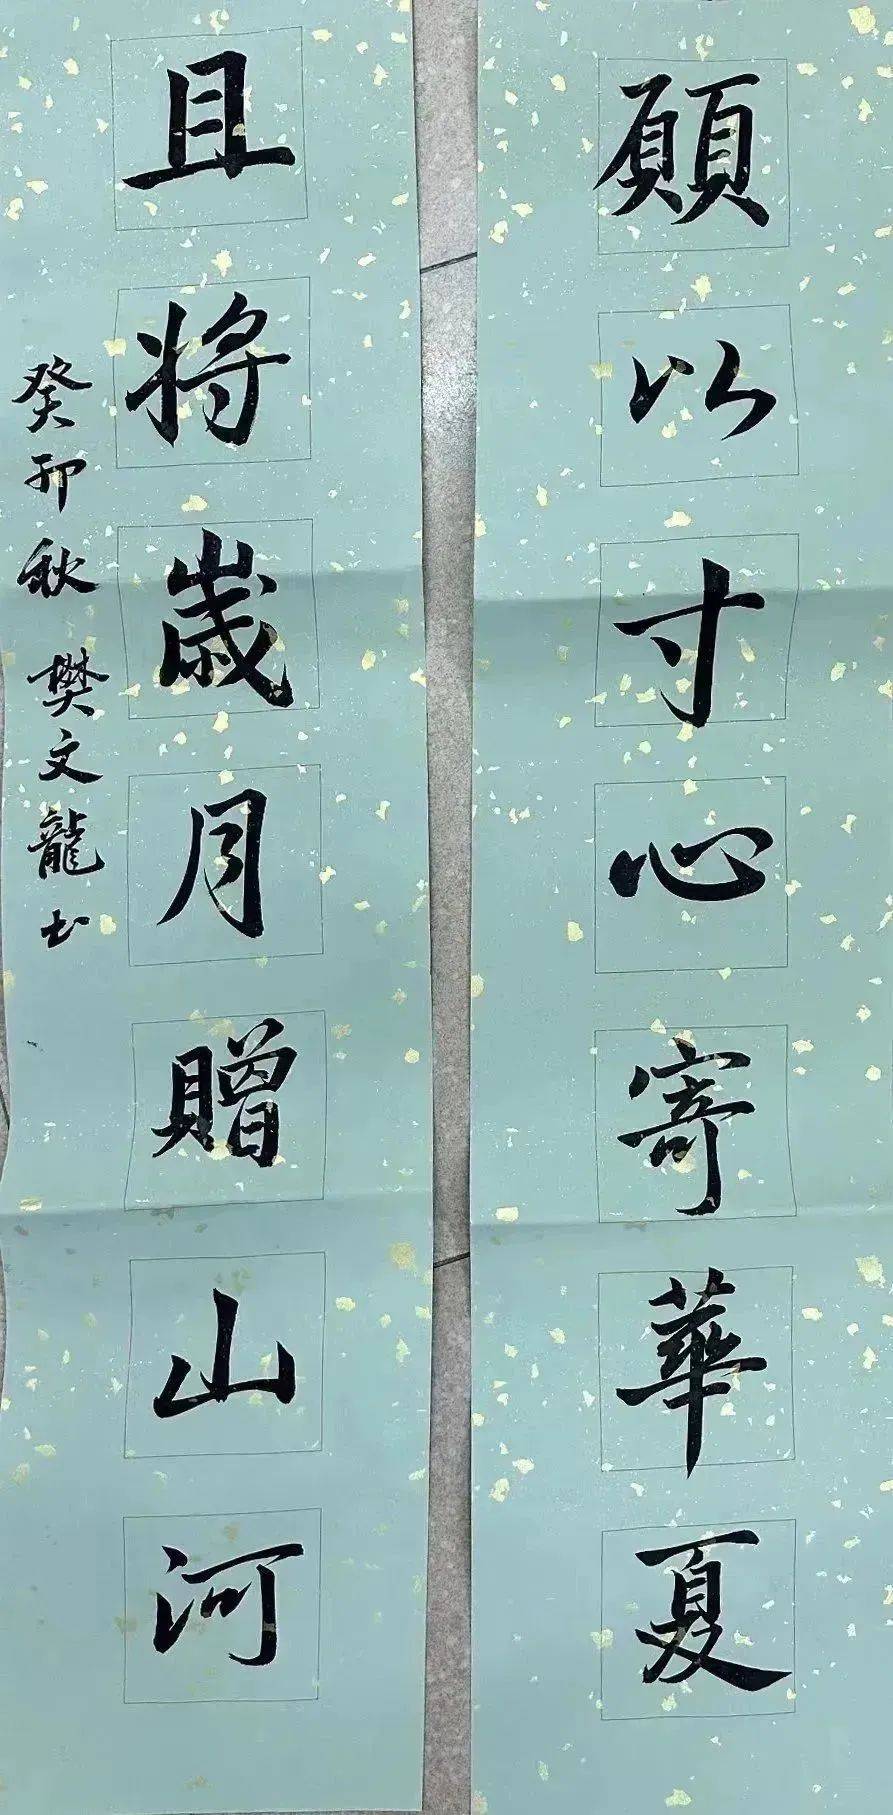 願以寸心寄華夏
且将歲月贈山河
癸卯秋 樊文龍书